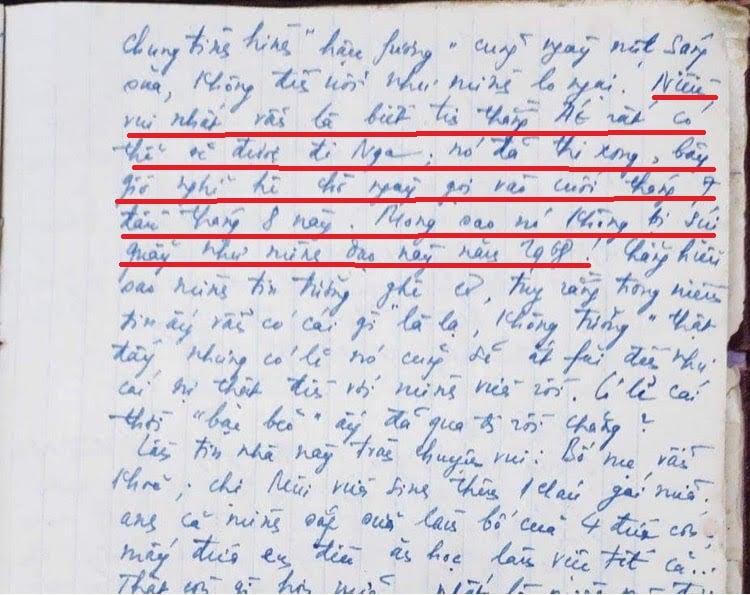 chung tình hình "hậu fương" cũng ngày một sáng
sủa, không đến nỗi như mình lo ngại. Niềm
vui nhất vẫn là biết tin thằng AE rất có
thể sẽ được đi Nga; nó đã thi xong, bây
giờ nghỉ hè chờ ngày gọi vào cuối tháng 7
đầu tháng 8 này. Mong sao nó không bị
quẩy như mình dạo này năm 1968! Chẳng hiểu
sao mình tin tưởng ghê cơ, tuy rằng trong niềm
tin ấy vẫn có cái gì "là lạ, không tưởng" thật
đấy nhưng có lẽ nó cũng sẽ ắt fải đến như
cái sự thật đến với mình vừa rồi. Có lẽ cái
thời ấy đã qua đi rồi chăng?
Lần tin nhà này tràn chuyện vui: Bố mẹ vẫn
khoẻ; chị vừa sinh thêm 1 cháu gái nữa,
anh cả mình sắp sửa làm bố của 4 đứa con,
mấy đứa em đều ăn học, làm việc tốt cả...
Thật còn gì hơn nữa